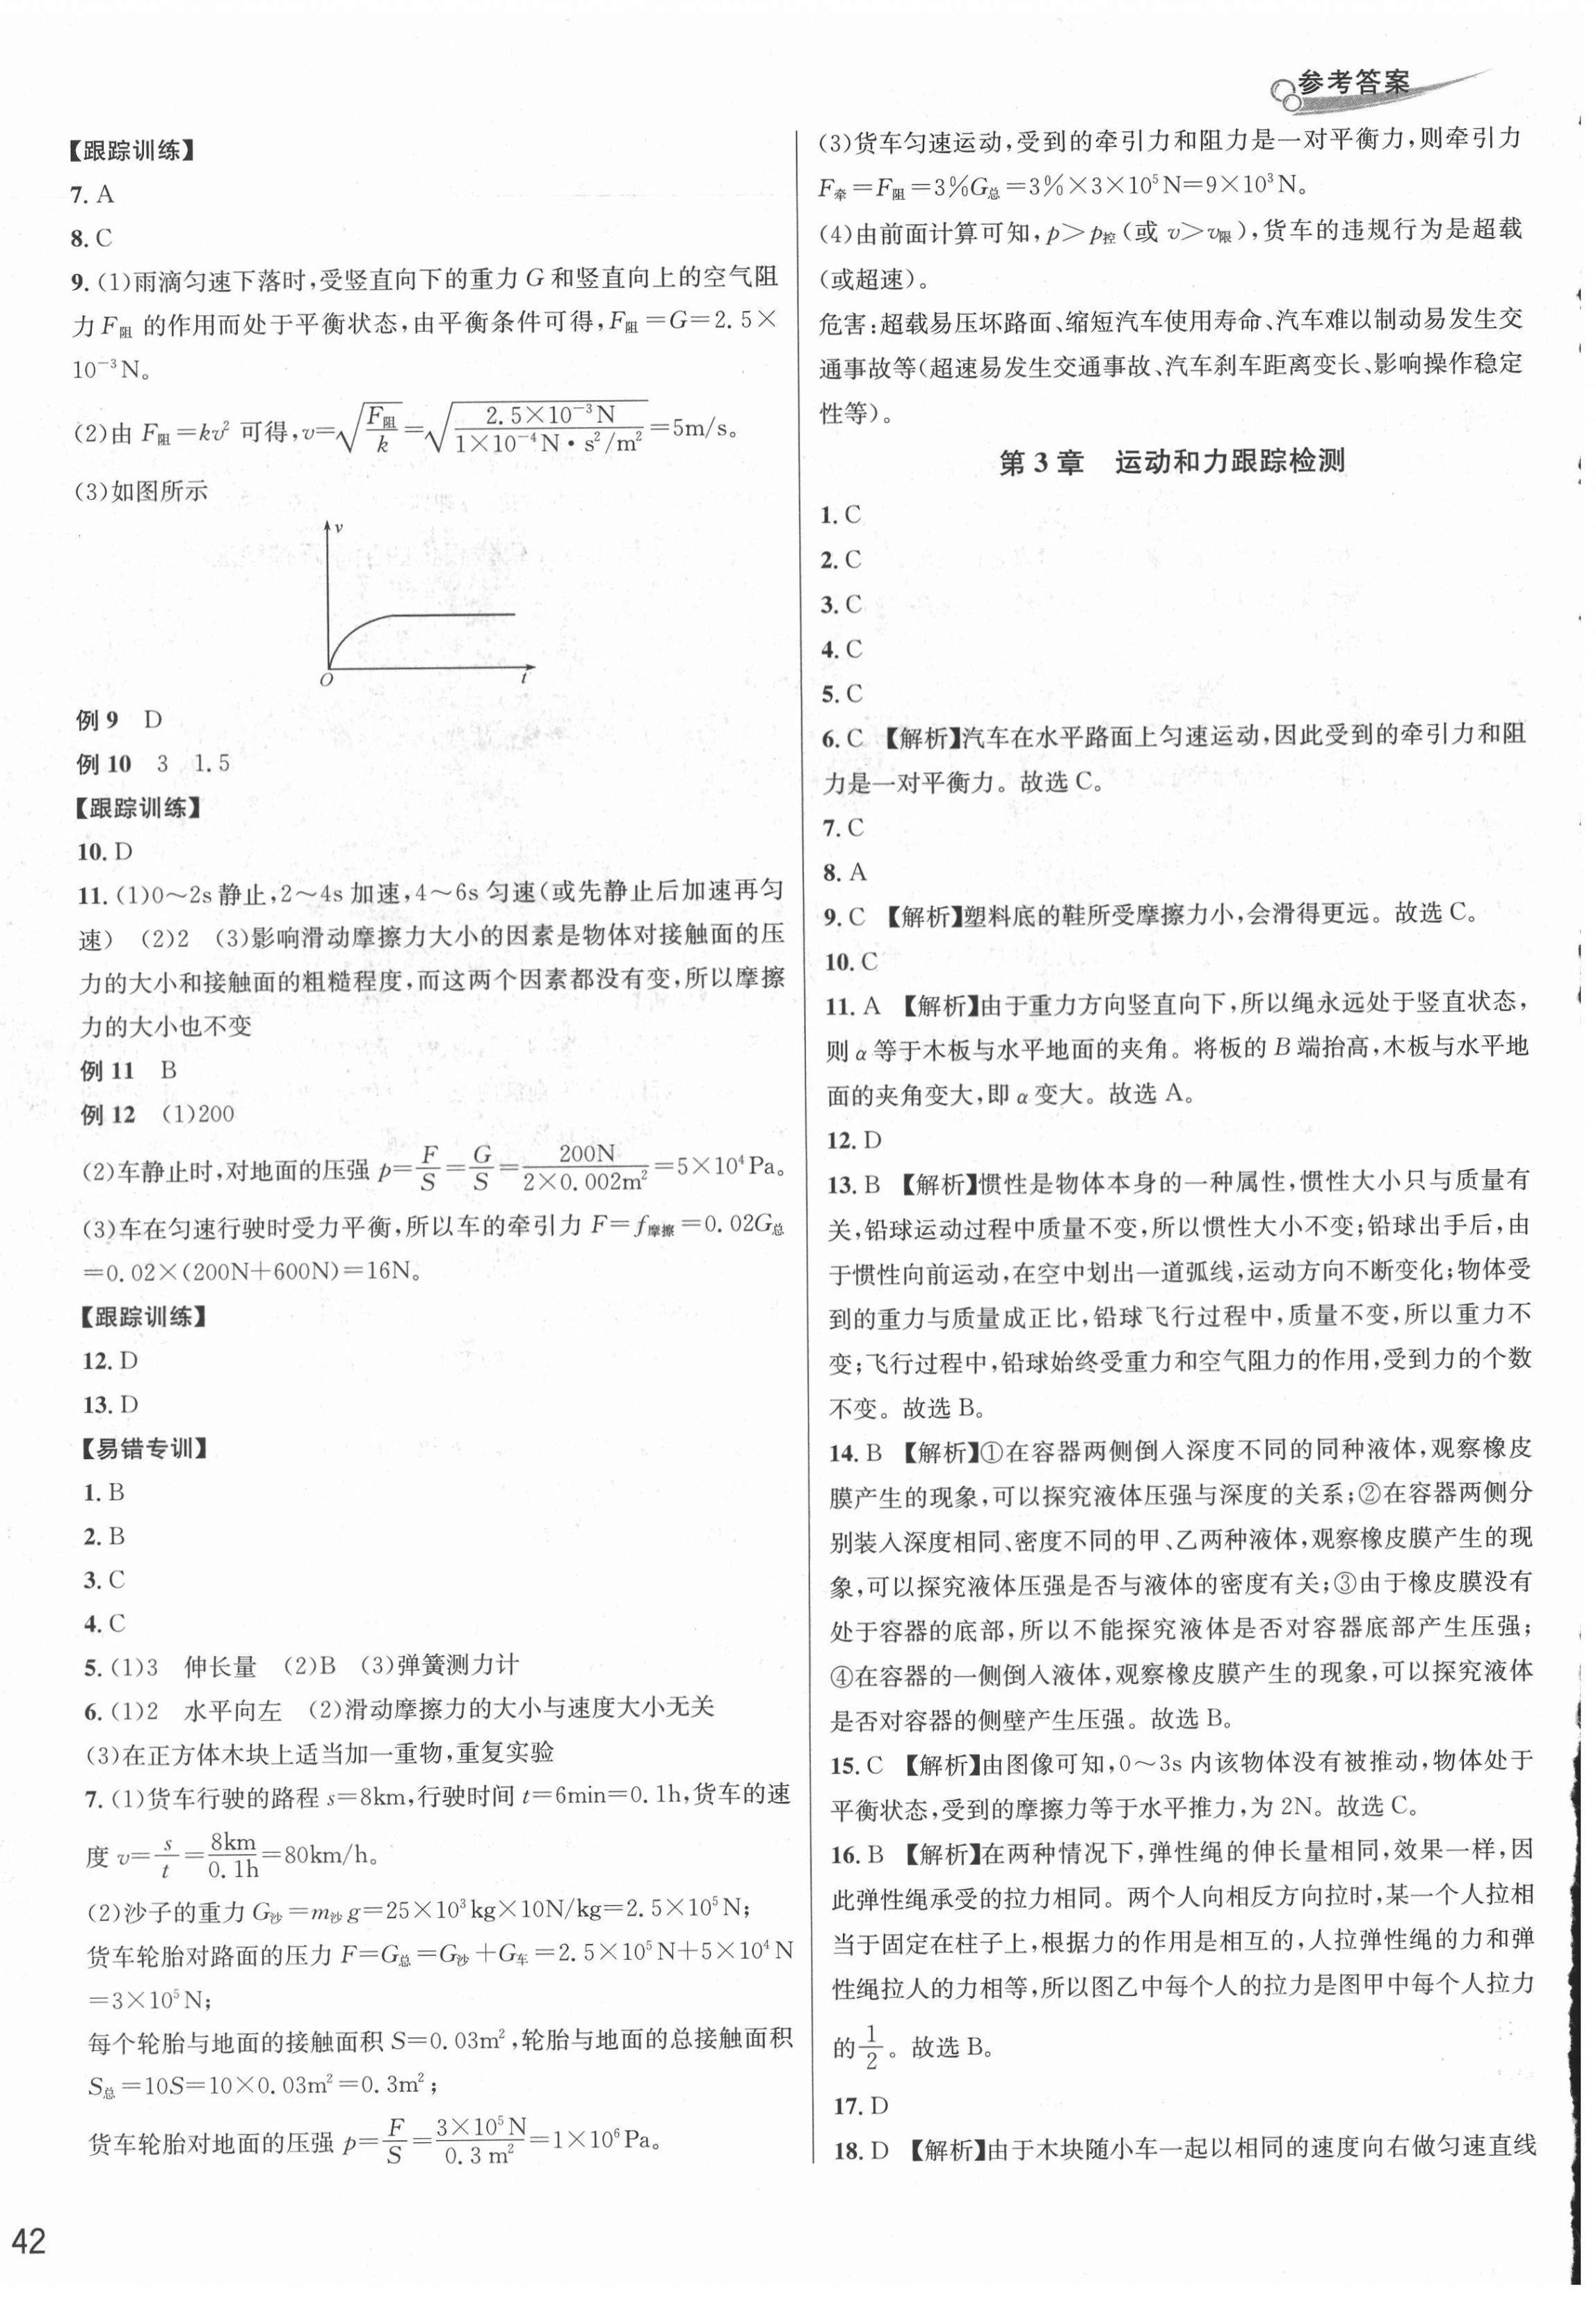 参考答案
【跟踪训练】
7. A
8. C
9. (1)雨滴匀速下落时,受竖直向下的重力 G 和竖直向上的空气阻
力 F阻 的作用而处于平衡状态,由平衡条件可得,F阻=G=2.5×
10⁻³N。
(2)由 F阻=kv² 可得,v=√(F阻/k)=√(2.5×10⁻³N/1×10⁻⁴N·s²/m²)=5m/s。
(3)如图所示
v
O
t
例 9 D
例 10 3 1.5
【跟踪训练】
10. D
11. (1)0~2s 静止,2~4s 加速,4~6s 匀速(或先静止后加速再匀
速) (2)2 (3)影响滑动摩擦力大小的因素是物体对接触面的压
力的大小和接触面的粗糙程度,而这两个因素都没有变,所以摩擦
力的大小也不变
例 11 B
例 12 (1)200
(2)车静止时,对地面的压强 p=F/S=G/S=200N/2×0.002m²=5×10⁴Pa。
(3)车在匀速行驶时受力平衡,所以车的牵引力 F=f摩擦=0.02G总
=0.02×(200N+600N)=16N。
【跟踪训练】
12. D
13. D
【易错专训】
1. B
2. B
3. C
4. C
5. (1)3 伸长量 (2)B (3)弹簧测力计
6. (1)2 水平向左 (2)滑动摩擦力的大小与速度大小无关
(3)在正方体木块上适当加一重物,重复实验
7. (1)货车行驶的路程 s=8km,行驶时间 t=6min=0.1h,货车的速
度 v=s/t=8km/0.1h=80km/h。
(2)沙子的重力 G沙=m沙g=25×10³kg×10N/kg=2.5×10⁵N;
货车轮胎对路面的压力 F=G总=G沙+G车=2.5×10⁵N+5×10⁴N
=3×10⁵N;
每个轮胎与地面的接触面积 S=0.03m²,轮胎与地面的总接触面积
S总=10S=10×0.03m²=0.3m²;
货车轮胎对地面的压强 p=F/S=3×10⁵N/0.3m²=1×10⁶Pa。
42
(3)货车匀速运动,受到的牵引力和阻力是一对平衡力,则牵引力
F牵=F阻=3%G总=3%×3×10⁵N=9×10³N。
(4)由前面计算可知,p>p控(或 v>v限),货车的违规行为是超载
(或超速)。
危害:超载易压坏路面、缩短汽车使用寿命、汽车难以制动易发生交
通事故等(超速易发生交通事故、汽车刹车距离变长、影响操作稳定
性等)。
第 3 章 运动和力跟踪检测
1. C
2. C
3. C
4. C
5. C
6. C 【解析】汽车在水平路面上匀速运动,因此受到的牵引力和阻
力是一对平衡力。故选 C。
7. C
8. A
9. C 【解析】塑料底的鞋所受摩擦力小,会滑得更远。故选 C。
10. C
11. A 【解析】由于重力方向竖直向下,所以绳永远处于竖直状态,
则 α 等于木板与水平地面的夹角。将板的 B 端抬高,木板与水平地
面的夹角变大,即 α 变大。故选 A。
12. D
13. B 【解析】惯性是物体本身的一种属性,惯性大小只与质量有
关,铅球运动过程中质量不变,所以惯性大小不变;铅球出手后,由
于惯性向前运动,在空中划出一道弧线,运动方向不断变化;物体受
到的重力与质量成正比,铅球飞行过程中,质量不变,所以重力不
变;飞行过程中,铅球始终受重力和空气阻力的作用,受到力的个数
不变。故选 B。
14. B 【解析】①在容器两侧倒入深度不同的同种液体,观察橡皮
膜产生的现象,可以探究液体压强与深度的关系;②在容器两侧分
别装入深度相同、密度不同的甲、乙两种液体,观察橡皮膜产生的现
象,可以探究液体压强是否与液体的密度有关;③由于橡皮膜没有
处于容器的底部,所以不能探究液体是否对容器底部产生压强;
④在容器的一侧倒入液体,观察橡皮膜产生的现象,可以探究液体
是否对容器的侧壁产生压强。故选 B。
15. C 【解析】由图像可知,0~3s 内该物体没有被推动,物体处于
平衡状态,受到的摩擦力等于水平推力,为 2N。故选 C。
16. B 【解析】在两种情况下,弹性绳的伸长量相同,效果一样,因
此弹性绳承受的拉力相同。两个人向相反方向拉时,某一个人拉相
当于固定在柱子上,根据力的作用是相互的,人拉弹性绳的力和弹
性绳拉人的力相等,所以图乙中每个人的拉力是图甲中每个人拉力
的1/2。故选 B。
17. D
18. D 【解析】由于木块随小车一起以相同的速度向右做匀速直线